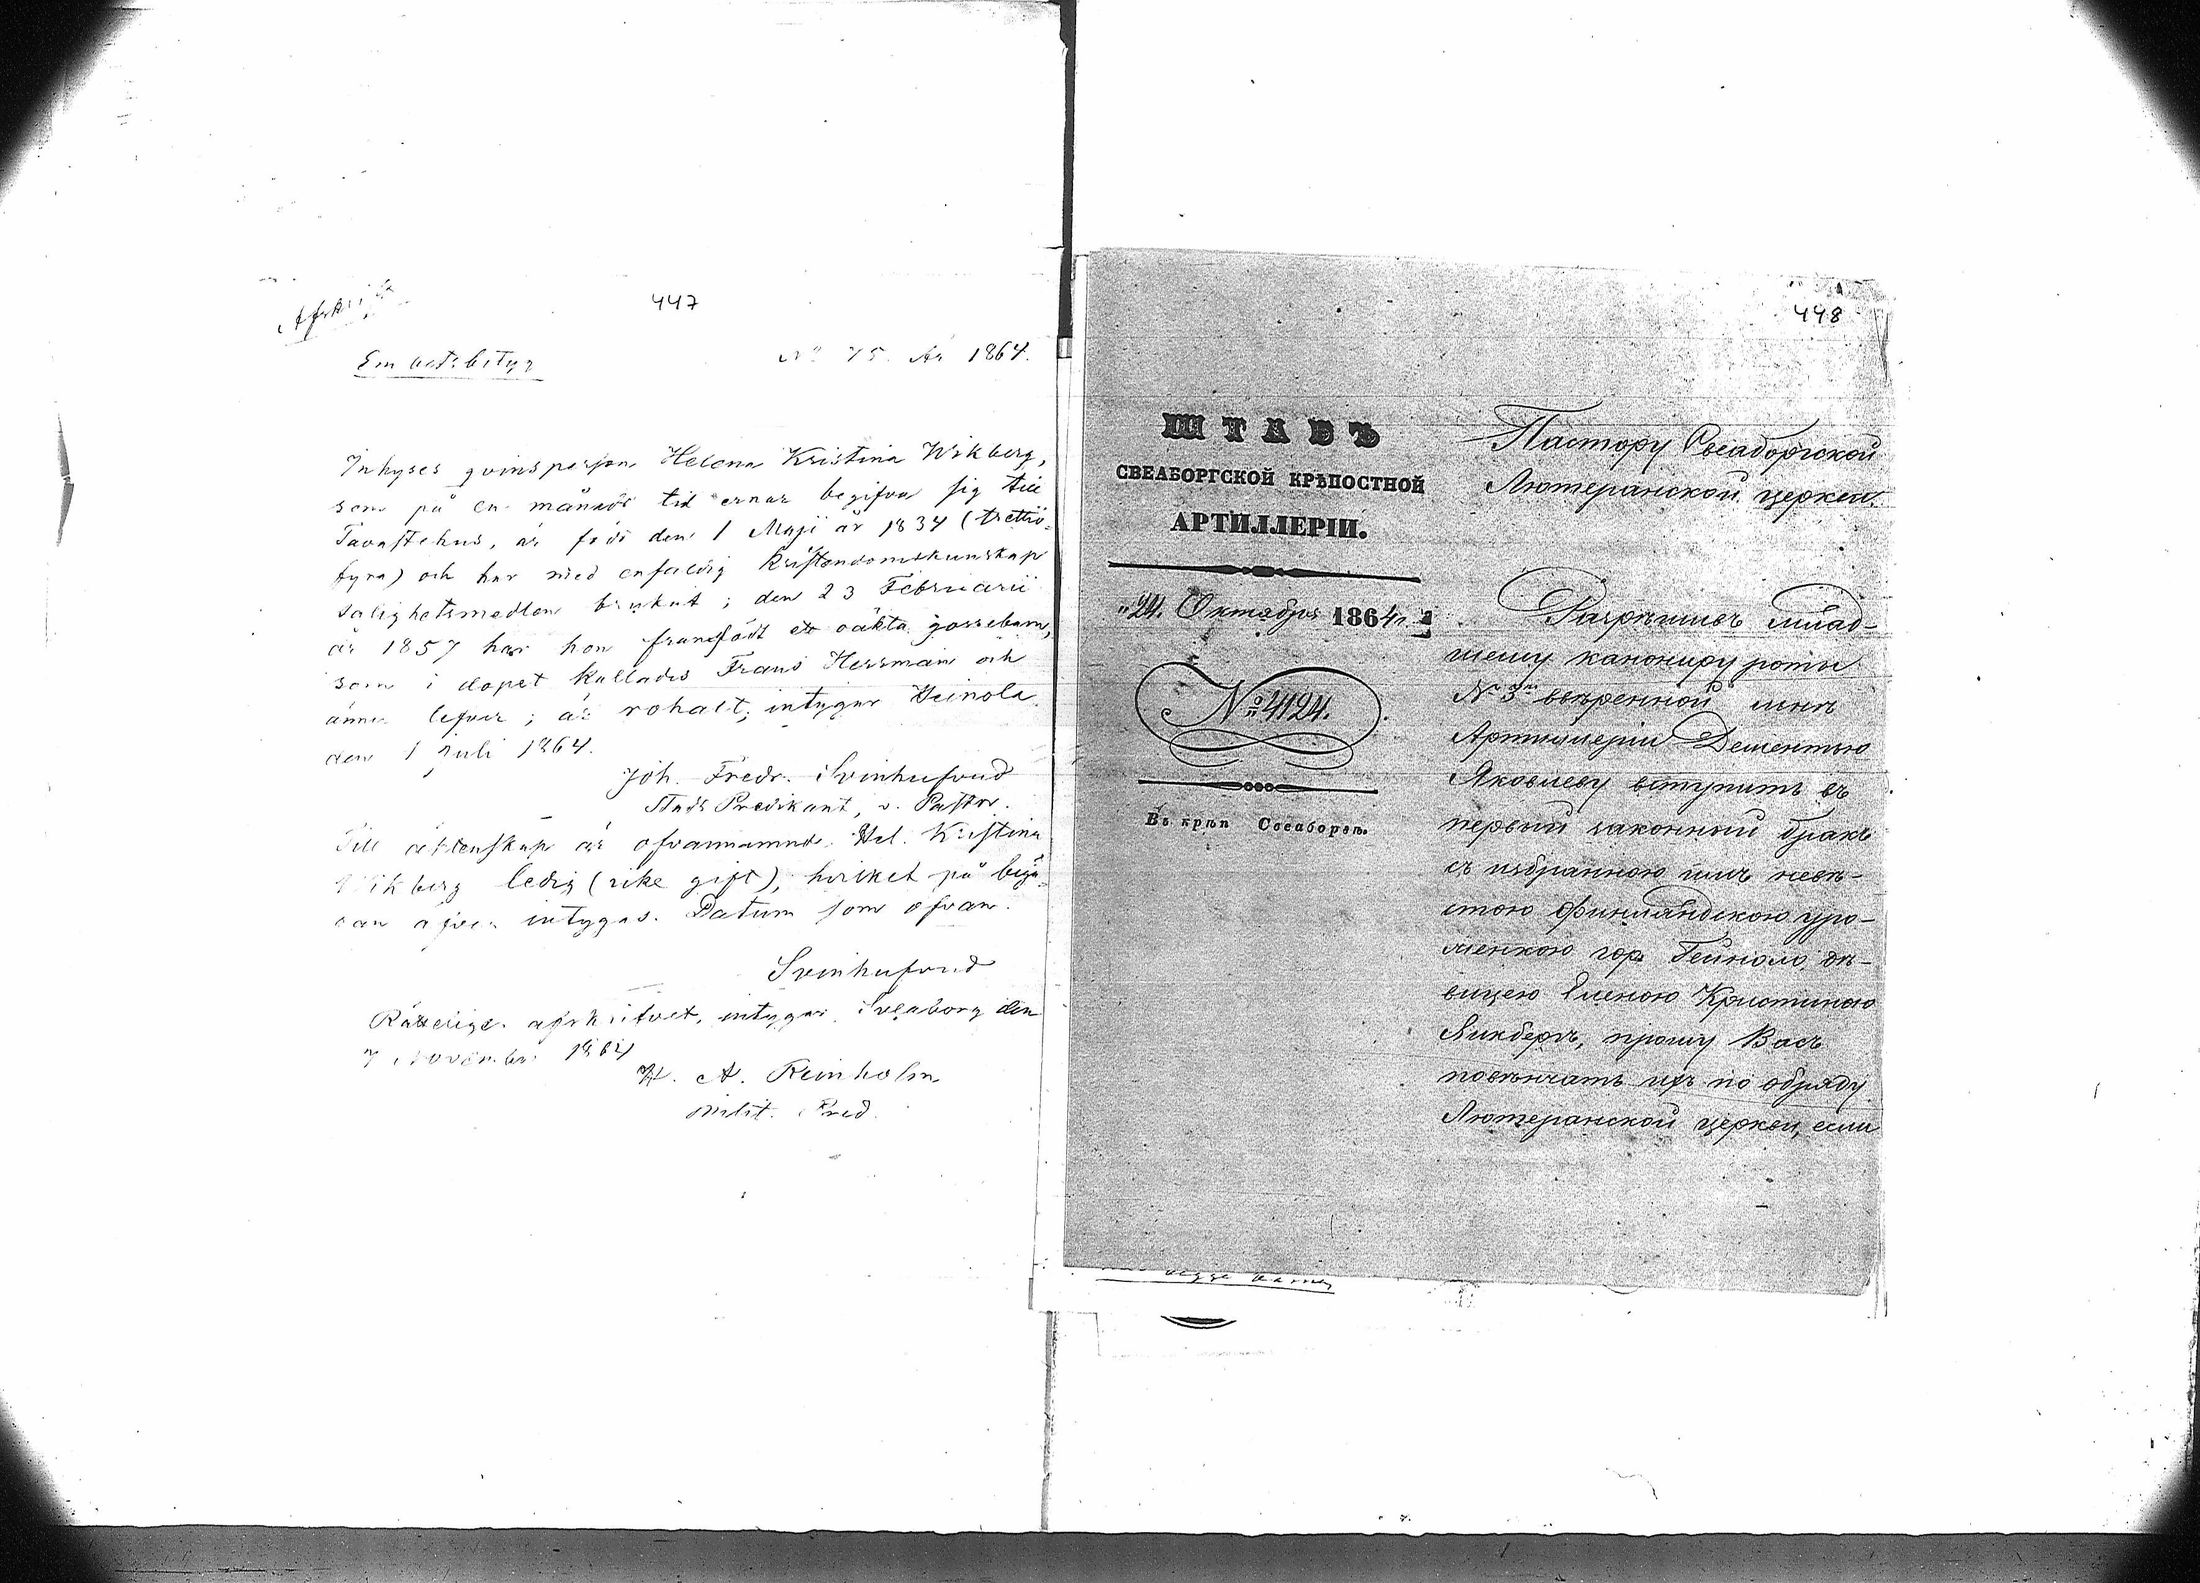 Afskrift
447
Em betsbetyg
N:o 75. År 1864.
Inhyses qvinsperson Helena Kristina Wikberg,
som på en månads tid ernar begifva sig till
Tavastehus, är född den 1 Maji år 1834 (trettio-
fyra) och har med enfaldig kristendomskunskap
salighetsmedlen brukat; den 23 Februarii
år 1857 har hon framfödt et oäkta gossebarn,
som i dopet kallades Frans Herrman och
ännu lefver; är rohalt; intygar Heinola
den 1 Juli 1864.
Joh. Fredr. Svinhufvud
Stads Predikant, v. Pastor.
Till äktenskap är ofvannämnde Hel. Kristina
Wikberg ledig (icke gift), hvilket på begä-
ran äfven intygas. Datum som ofvan.
Svinhufvud
Rätteligen afskrifvet, intygar Sveaborg den
7 November 1864
H. A. Reinholm
Milit. Pred.
448
ШТАБЪ
СВЕАБОРГСКОЙ КРѢПОСТНОЙ
АРТИЛЛЕРІИ.
"24" Октября 1864 г.
№ 4124.
Въ крѣп Свеаборгѣ.
Пастору Свеаборгской
Лютеранской церкви.
Разрѣшивъ млад-
шему канониру роты
№ 3го ввѣренной мнѣ
Артиллеріи Дементью
Яковлеву вступить въ
первый законный бракъ
съ избранною имъ невѣ-
стою Финляндскою уро-
женкою гор. Гейноло, дѣ-
вицею Еленою Кристиною
Викбергъ, прошу Васъ
повѣнчать ихъ по обряду
Лютеранской церкви, если